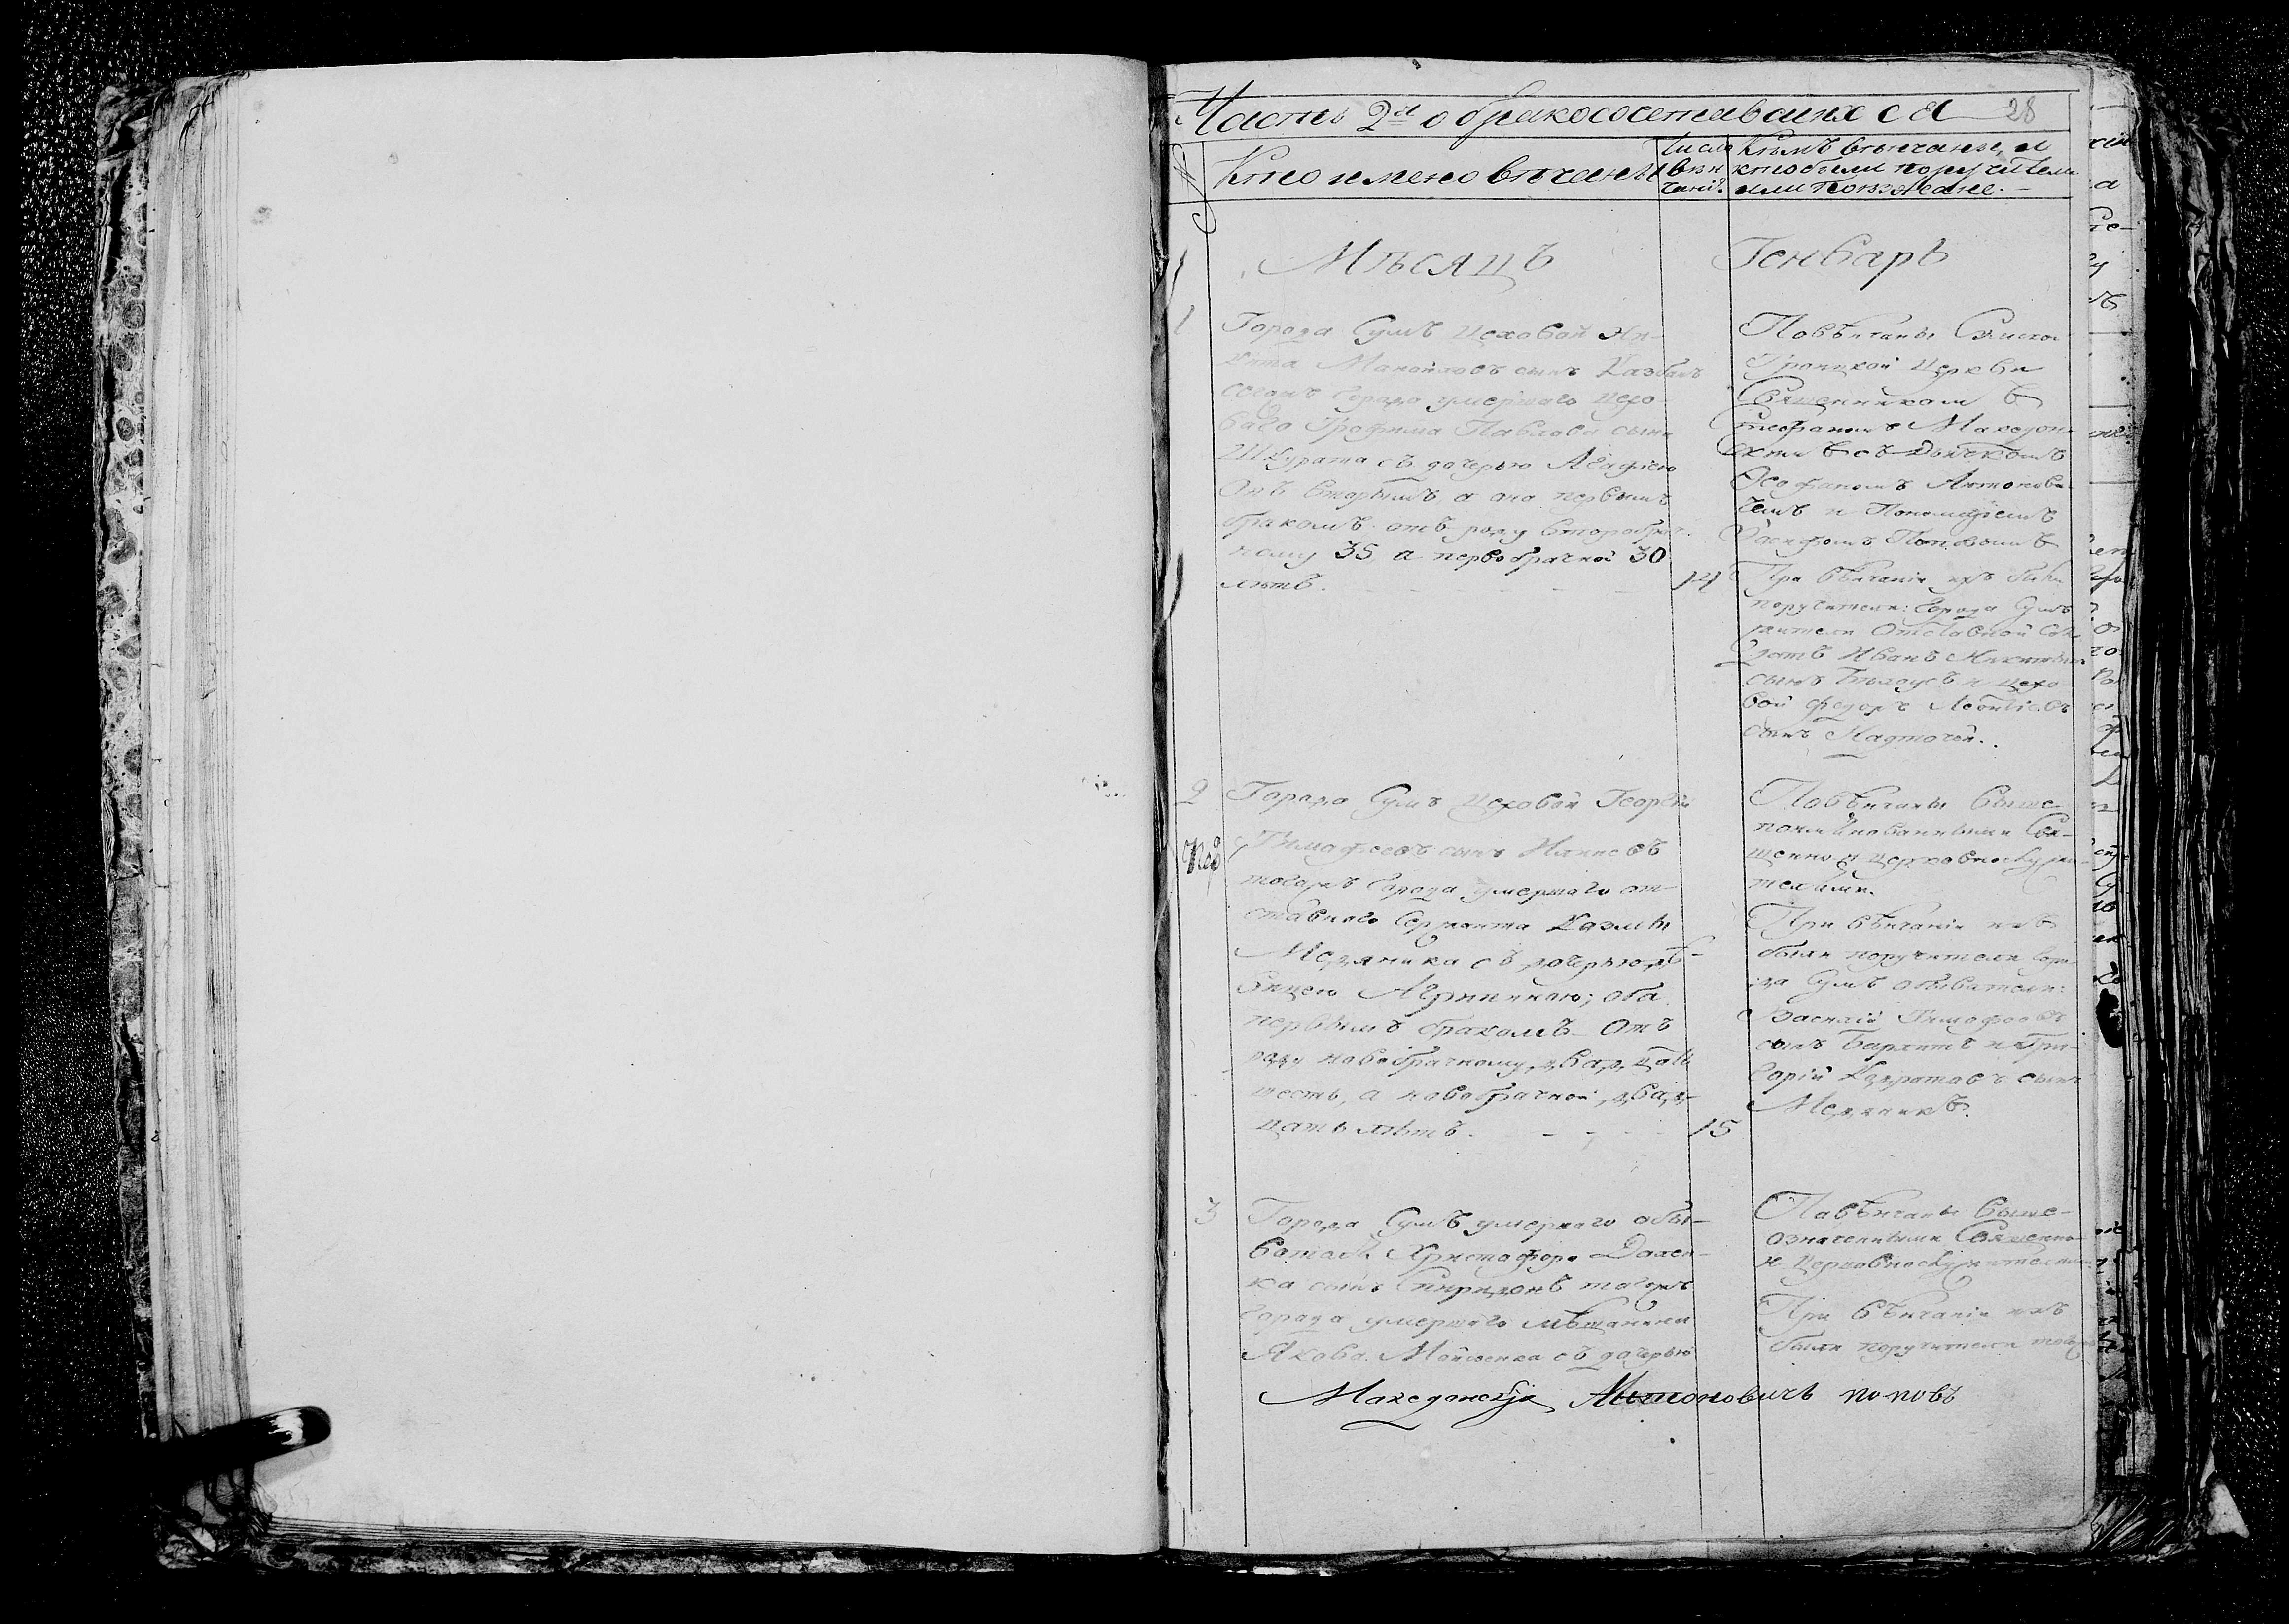 Часть 2я о бракосочетавшихся 28
№
Кто имено венчаны
Число вен чаній
Кѣмъ вѣнчаны, и
кто были поручители
или поезжане.
Мѣсяцъ Генварь
1
Города Сумъ цеховой Ни-
кита Манойловъ сынъ
города умершаго цехо-
ваго Трофима Павлова сына
Шкурата съ дочерью Агафіею
Онъ вторымъ, а она первымъ
бракомъ. отъ роду второбрач-
ному 35, а первобрачной 30
лѣтъ.
14
Повѣнчаны Свято
Троицкой Церкви
Священникомъ
Стефаномъ Македон-
скимъ съ Дьячкомъ
Феофаномъ Антонови-
чемъ и Пономаремъ
Поповымъ
При вѣнчаніи ихъ были
поручители: города Сумъ
жители Отставной Сол-
датъ Иванъ Никитинъ
сынъ Бѣлоусъ и цехо-
вой Федоръ Леонтіевъ
сынъ Надточей.
2
Города Сумъ Цеховой Георгій
Тимофеевъ сынъ
тогожъ города умершаго от-
ставного Сержанта Казмы
Медяника съ дочерью дѣ-
вицею Агрипиною; оба
первымъ бракомъ. Отъ
роду новобрачному, двадцать
шесть, а новобрачной, двад-
цать лѣтъ.
15
Повѣнчаны выше
поименованными Свя-
щенно и церковнослужи-
телями.
При вѣнчаніи ихъ
были поручители горо-
да Сумъ обыватели:
Василій Тимофеевъ
сынъ и Гри-
горій Кондратовъ сынъ
Медяникъ.
3
Города Сумъ умершаго обы-
вателя Христофора
сынъ Спиридонъ тогожъ
города умершаго мѣщанина
Якова Мойсенка съ дочерью
Повѣнчаны выше-
означенными Священно
и Церковнослужителями
При вѣнчаніи ихъ
были поручители
Македонскій Антоновичъ Поповъ